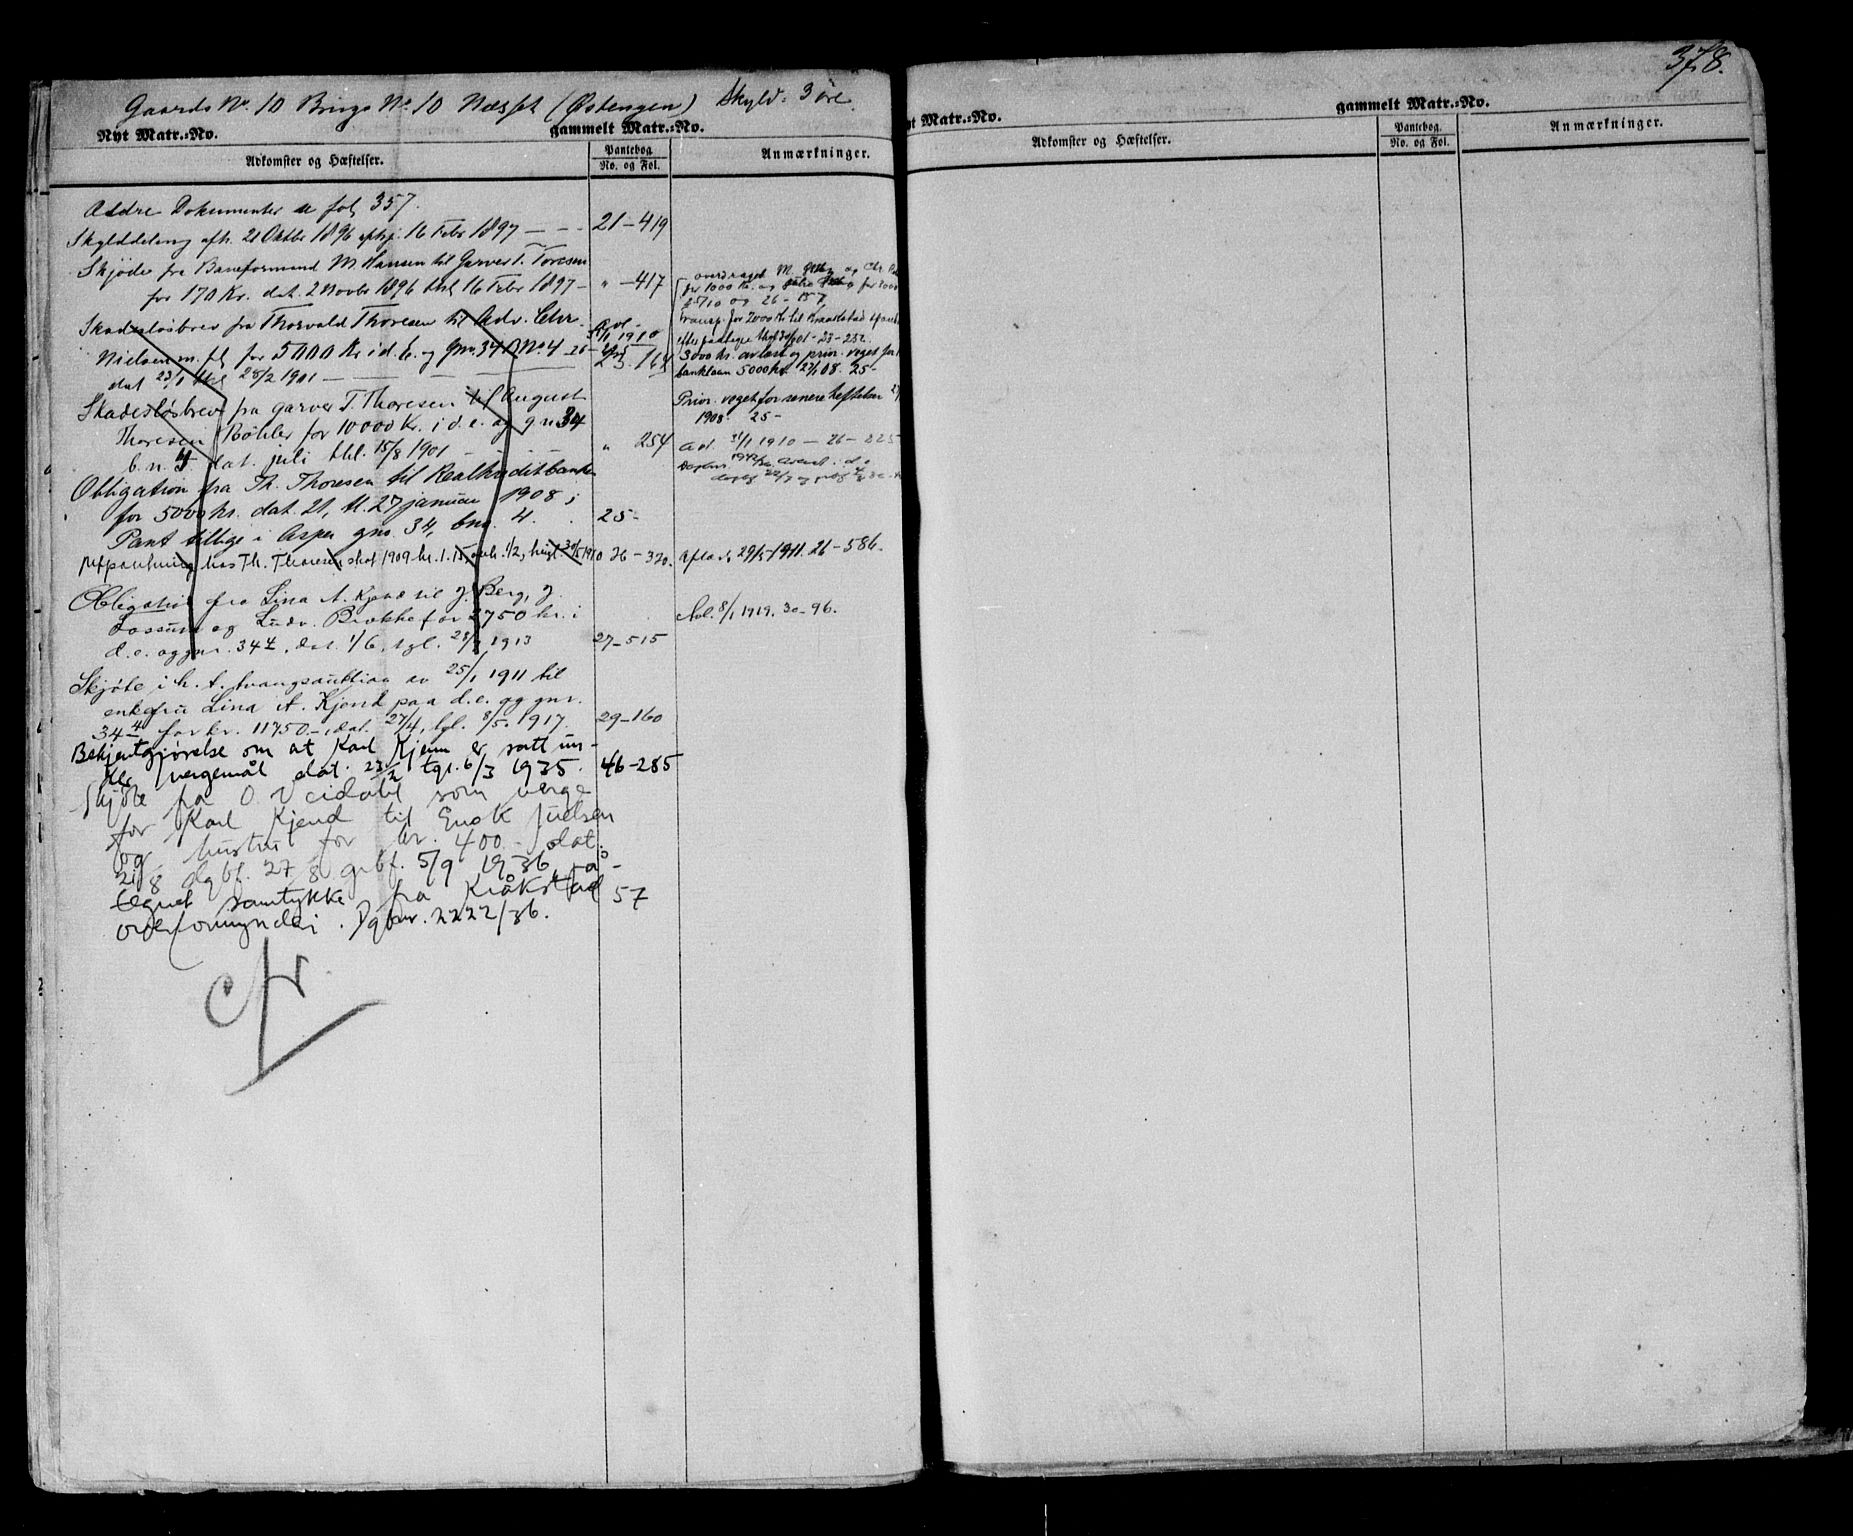 378.
Gaards No. 10 Brugs No. 10 Næsset (Østengen) Skyld: 3 øre.
Nyt Matr.-No. gammelt Matr.-No.
Adkomster og Hæftelser. Pantebog No. og Fol. Anmærkninger.
Ældre Dokumenter se fol 357.
Skylddeling afh. 21 Oktbr 1896 16 Febr 1897 — — - 21-419
Skjøde fra Baneformand M Hansen til Garver T. Toresen
for 170 Kr. dat. 2 Novbr 1896 thl 16 Febr 1897 - " - 417
overdraget M. og Chr.
for 1000 Kr. og for
25710 og 26-157
Skadesløsbrev fra Thorvald Thoresen til Adv. Chr.
Nielsen m. fl for 5000 Kr i d. E. og Gno. 34 B No. 4
dat 23/1 thl 28/2 1901 — 23-164
Avl. 1910 26-
Transp. for 2000 Kr til Kraakstad
23-252
3000 kr. avlæst og prior. veget for
banklaan 5000 kr. 27/1 08. 25-
Skadesløsbrev fra garver T. Thoresen til August
Thoresen Bøhler for 10000 Kr. i d. e. og g n 34
b. n. 4 dat. juli thl. 15/8 1901 - " 254
Prior. veget for senere heftelse 27/
1908. 25-
Avl. 31/1 1910 — 26-225
Obligation fra Th. Thoresen til Realkreditbanken
for 5000 kr. dat. 21, tl. 27 januar 1908 i
Pant tillige i Asper gno. 34, bno. 4. 25-
Utpantning hos Th. Thoresen skat 1909 kr. 1.15, 1/2, 30/5 1910 26-320. Aflæst 29/5 1911. 26-586.
Obligation fra Lina A. Kjend til J. Berg, J.
Lossum og Ludv. Brokke for 2750 kr. i
d. e. og gnr. 34 4, dat. 1/6, tgl. 28/7 1913 27-515
Avl. 8/1 1919. 30-96.
Skjøte i h. t. tvangsauktion av 25/1 1911 til
enkefru Lina A. Kjend paa d. e. og gnr.
34 4 for kr. 11750.-, dat. 27/4, tgl. 8/5 1917. 29-160
Bekjentgjørelse om at Karl Kjenn er satt un-
der vergemål dat. 23/2 tgl. 6/3 1935. 46-285
Skjøte fra O. Veidahl som verge
for Karl Kjend til Enok Juelsen
og hustru for kr. 400.- dat.
21/8 dgbf. 27/8 grbf. 5/9 1936, på-
tegnet samtykke fra Kråkstad 57
overformynderi. Dgbnr. 2222/36.
cfr
Nyt Matr.-No. gammelt Matr.-No.
Adkomster og Hæftelser. Pantebog No. og Fol. Anmærkninger.